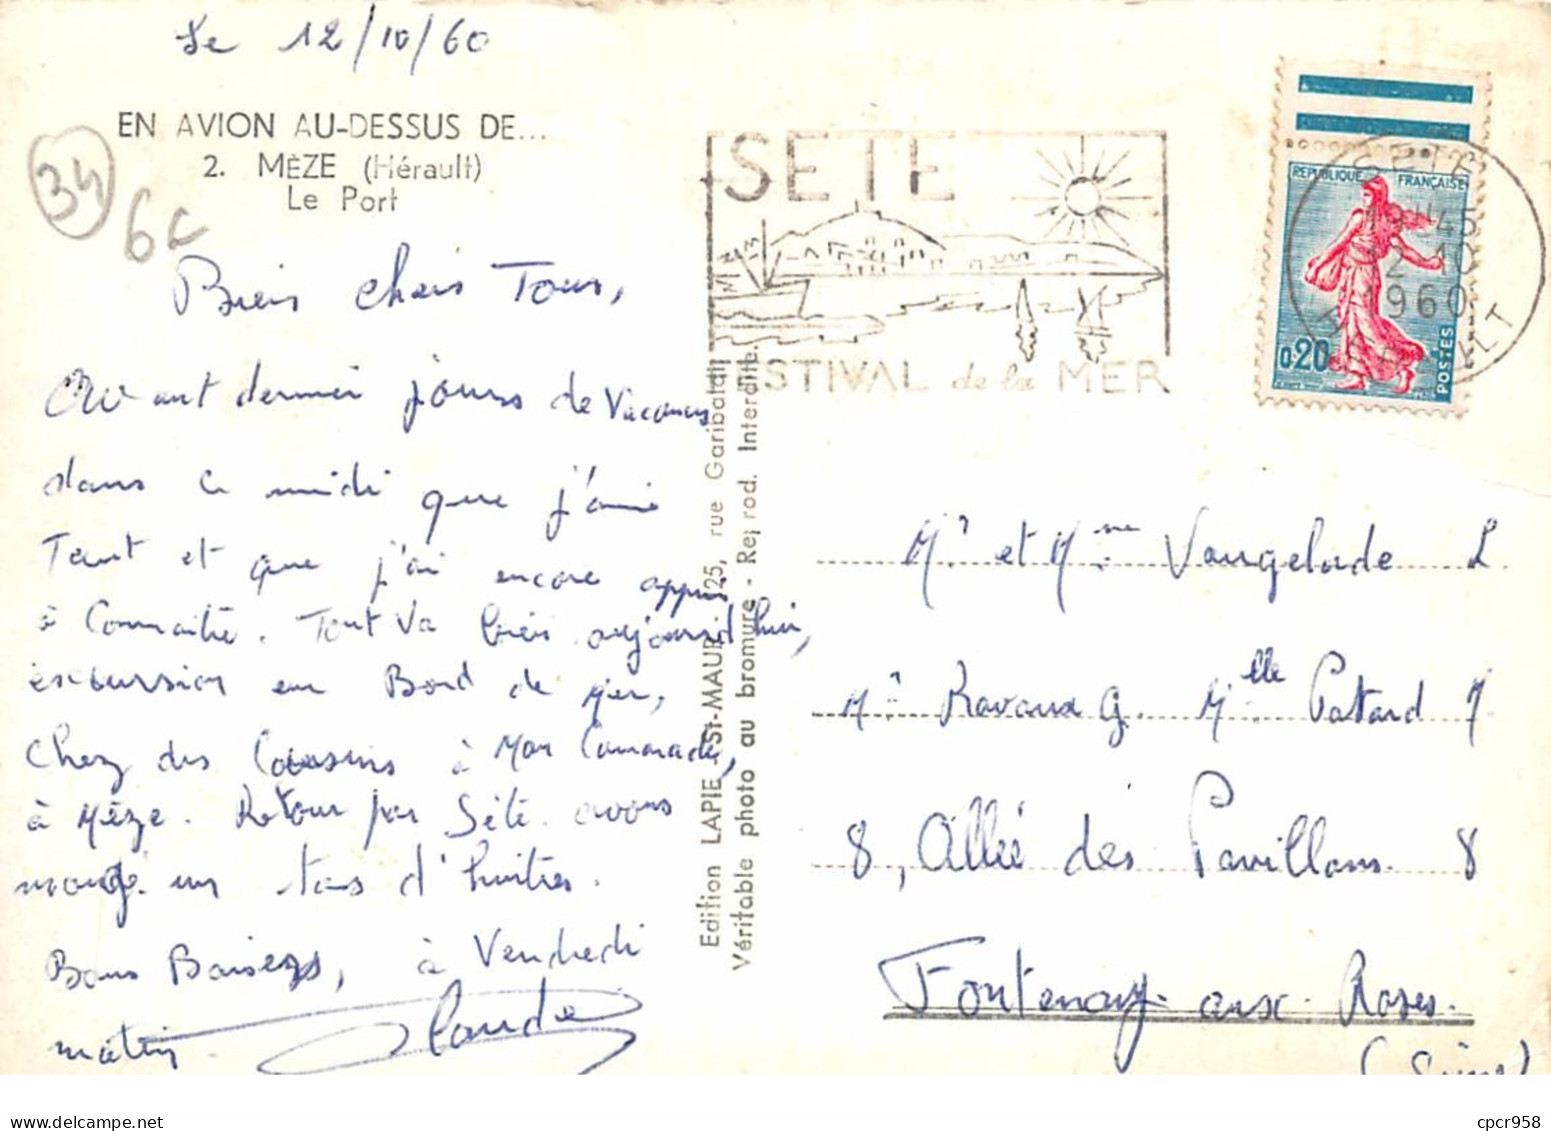 Le 12/10/60
EN AVION AU-DESSUS DE...
2. MÈZE (Hérault)
Le Port
34
6c
Bien chers Tous,
Avant dernier jours de Vacances
dans ce midi que j'aime
Tant et que j'ai encore appris
à Connaître. Tout va bien aujourd'hui,
excursion en Bord de Mer,
chez des Cousins à Mon Camarade,
à Mèze. Retour par Sète. avons
mangé un tas d'huitres.
Bons Baisers, à Vendredi
matin. Claude
Edition LAPIE St-MAUR 125, rue Garibaldi
Véritable photo au bromure - Reprod. Interdite.
SETE
FESTIVAL de la MER
SETE
19H45
12-10
1960
HERAULT
REPUBLIQUE FRANÇAISE
0,20
POSTES
Mr et Mme Vangelade L
Mr Ravaux G. Melle Patard M
8, Allée des Pavillons 8
Fontenay-aux-Roses.
(Seine)
cpcr958